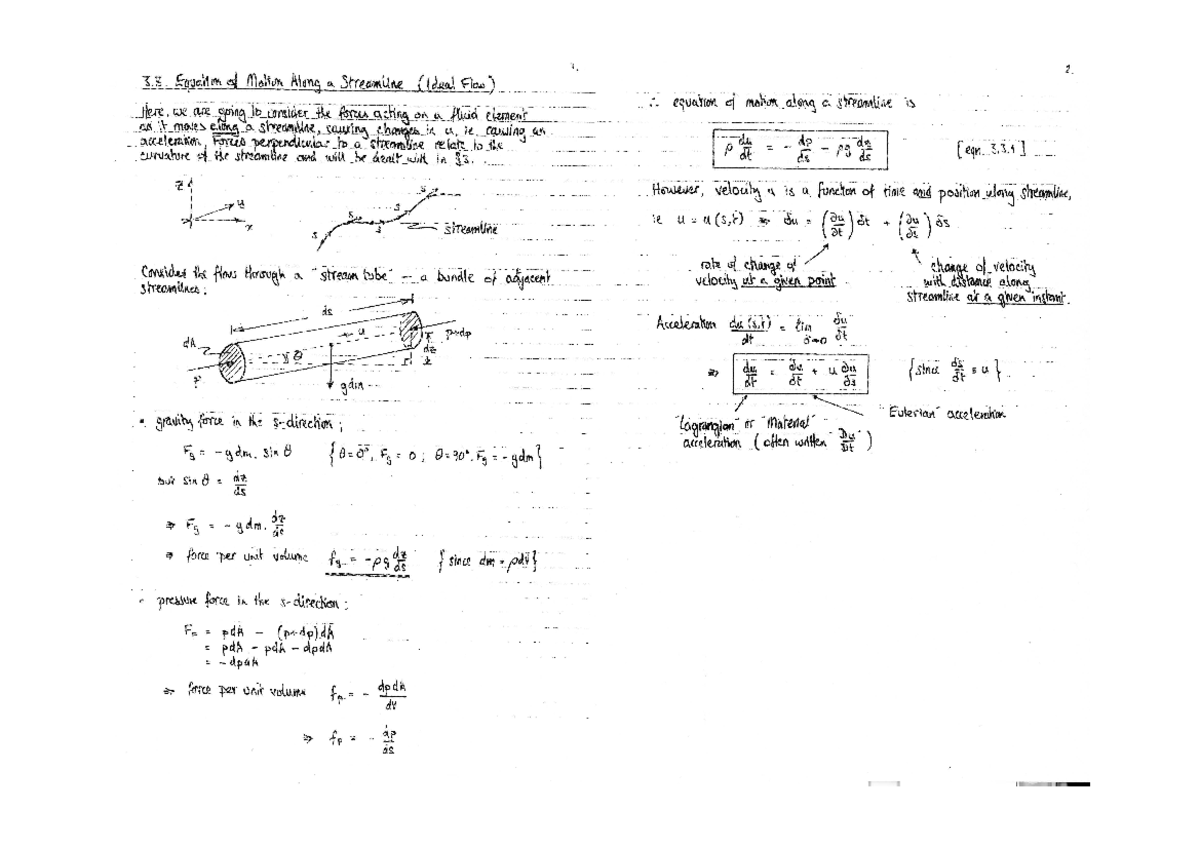 1.
3.3 Equation of Motion Along a Streamline (Ideal Flow)
Here, we are going to consider the forces acting on a fluid element
as it moves along a streamline, causing changes in u, ie. causing an
acceleration. Forces perpendicular to a streamline relate to the
curvature of the streamline and will be dealt with in §3.
z
u
x
s
s
s
s
s
streamline
Consider the flow through a "stream tube" - a bundle of adjacent
streamlines:
ds
dA
u
p+dp
dz
θ
P
gdm
• gravity force in the s-direction;
Fg = -gdm. sin θ {θ=0°, Fg = 0; θ=90°, Fg = -gdm}
but sin θ = dz/ds
⇒ Fg = -gdm. dz/ds
⇒ force per unit volume fg = -ρg dz/ds {since dm = ρdV}
• pressure force in the s-direction:
Fp = pdA - (p+dp)dA
= pdA - pdA - dpdA
= -dpdA
⇒ force per unit volume fp = - dpdA/dV
⇒ fp = - dp/ds
2.
∴ equation of motion along a streamline is
ρ du/dt = - dp/ds - ρg dz/ds [eqn. 3.3.1]
However, velocity u is a function of time and position along streamline,
ie u = u(s,t) ⇒ δu = (∂u/∂t) δt + (∂u/∂s) δs
rate of change of
velocity at a given point
change of velocity
with distance along
streamline at a given instant.
Acceleration du(s,t)/dt = lim δt→0 δu/δt
⇒ du/dt = ∂u/∂t + u ∂u/∂s {since ds/dt = u}
"Lagrangian" or "Material"
acceleration (often written Du/Dt)
"Eulerian" acceleration